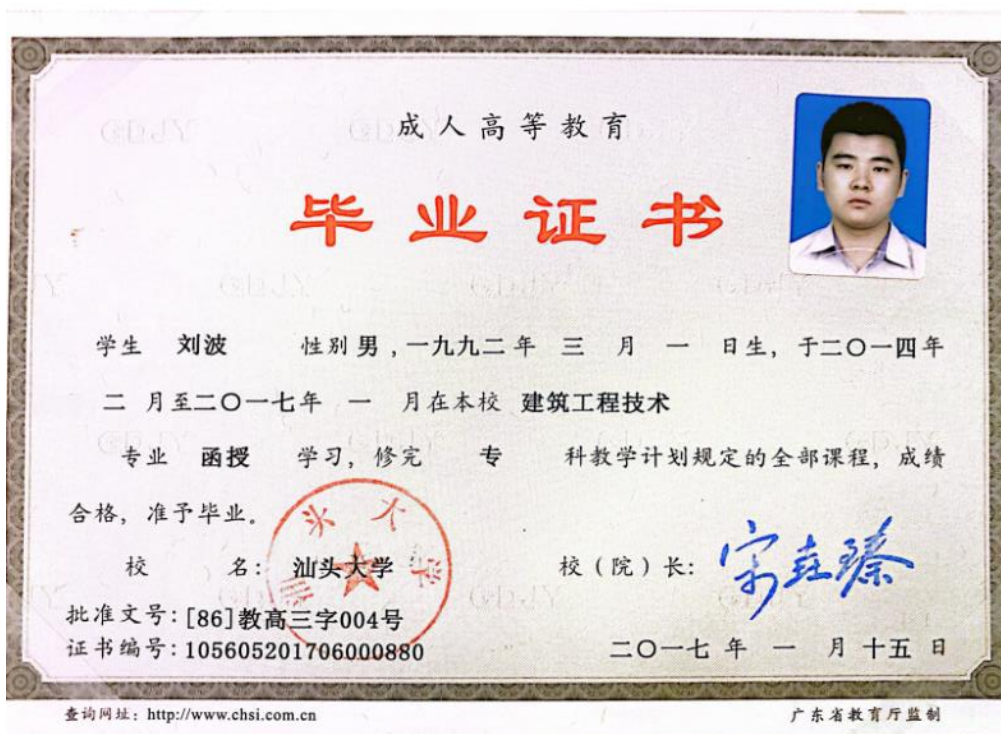 成人高等教育
毕业证书
学生 刘波 性别 男 ,一九九二 年 三 月 一 日生, 于二〇一四年
二 月至二〇一七年 一 月在本校 建筑工程技术
专业 函授 学习, 修完 专 科教学计划规定的全部课程, 成绩
合格, 准予毕业。
汕头大学
校 名: 汕头大学 校(院)长:
批准文号:[86]教高三字004号
证书编号:105605201706000880 二〇一七 年 一 月 十五 日
查询网址: http://www.chsi.com.cn 广东省教育厅监制